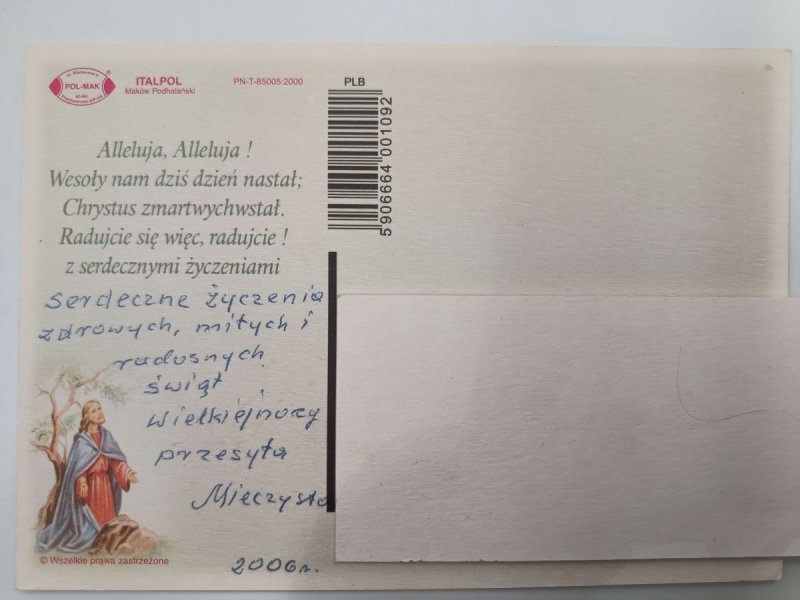 POL-MAK
ITALPOL
Maków Podhalański
PN-T-85005:2000
PLB
5906664 001092
Alleluja, Alleluja !
Wesoły nam dziś dzień nastał;
Chrystus zmartwychwstał.
Radujcie się więc, radujcie !
z serdecznymi życzeniami
serdeczne życzenia
zdrowych, miłych i
radosnych
świąt
Wielkiejnocy
przesyła
Mieczysła
2006r.
© Wszelkie prawa zastrzeżone